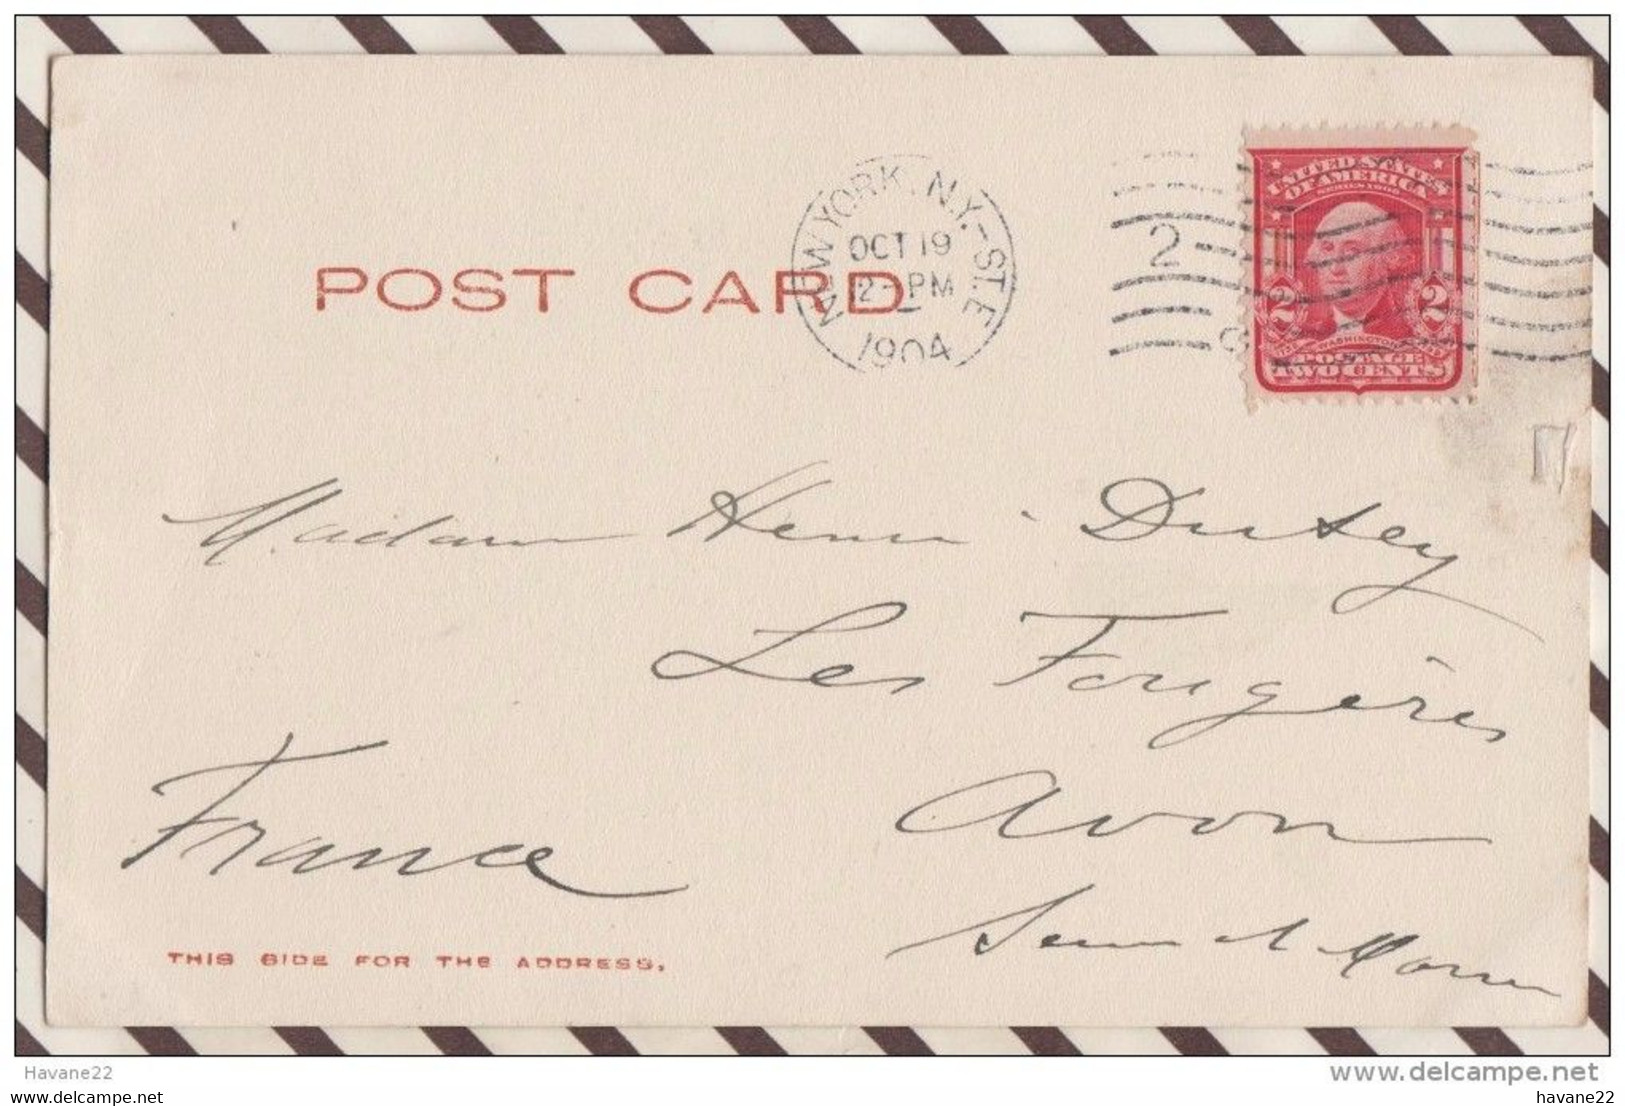 NEW YORK, N.Y.-ST. E
OCT 19
2-PM
1904
2
UNITED STATES
OF AMERICA
SERIES 1902
2 2
WASHINGTON
POSTAGE
TWO CENTS
POST CARD
Madam Henri
Les Fougères
Avon
Seine et Marne
France
THIS SIDE FOR THE ADDRESS.
Havane22
www.delcampe.net
havane22
havane22